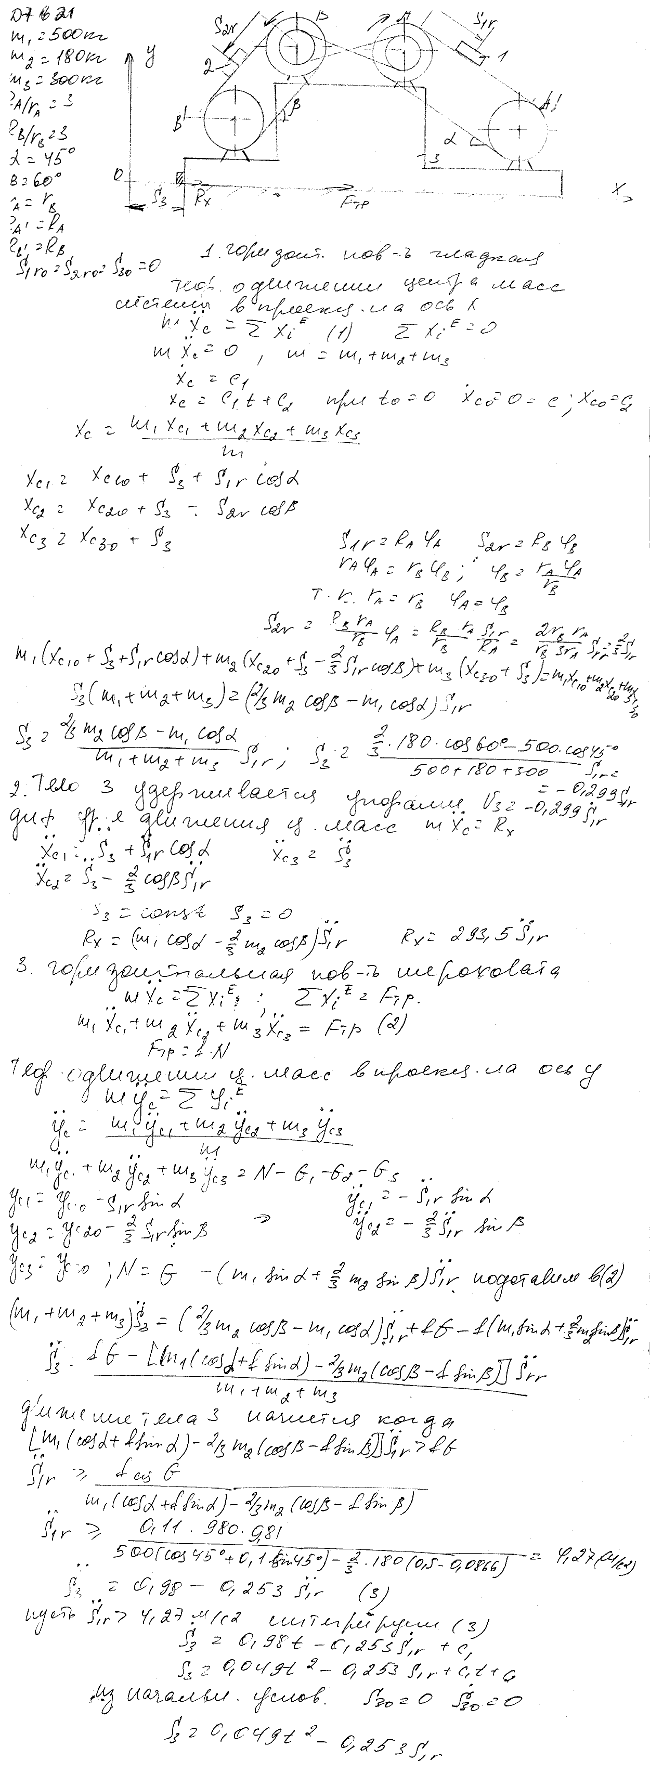 D7 B21
m₁=500кг
m₂=180кг
m₃=300кг
R_A/r_A=3
R_B/r_B=3
α=45°
B=60°
r_A=r_B
R_A'=R_A
R_B'=R_B
S₁r₀=S₂r₀=S₃₀=0
S₂r B A S₁r
y 2 1
B' B A'
α
3
0 S₃ Rx Fтр X
1. горизонт. пов-ть гладкая
теор. о движении центра масс
системы в проекц. на ось X
mẍc=Σxiᴱ (1) Σxiᴱ=0
mẍc=0, m=m₁+m₂+m₃
ẋc=c₁
xc=c₁t+c₂ при t₀=0
xc=(m₁xc₁+m₂xc₂+m₃xc₃)/m
xc₁=xc₁₀+S₃+S₁r cosα
xc₂=xc₂₀+S₃-S₂r cosβ
xc₃=xc₃₀+S₃
S₁r=R_Aφ_A S₂r=R_Bφ_B
r_Aφ_A=r_Bφ_B; φ_B=r_Aφ_A/r_B
т.к. r_A=r_B φ_A=φ_B
m₁(xc₁₀+S₃+S₁r cosα)+m₂(xc₂₀+S₃-⅔S₁r cosβ)+m₃(xc₃₀+S₃)=m₁xc₁₀+m₂xc₂₀+m₃xc₃₀
S₃(m₁+m₂+m₃)=(⅔m₂cosβ-m₁cosα)S₁r
S₃=(⅔m₂cosβ-m₁cosα)/(m₁+m₂+m₃) S₁r; S₃=(⅔·180·cos60°-500·cos45°)/(500+180+300) S₁r=
=-0,299S₁r
2. Тело 3 удерживается упорами
диф. ур-е движения ц. масс mẍc=Rx
ẍc₁=S̈₃+S̈₁r cosα ẍc₃=S̈₃
ẍc₂=S̈₃-⅔cosβS̈₁r
S₃=const S̈₃=0
Rx=(m₁cosα-⅔m₂cosβ)S̈₁r Rx=293,5S̈₁r
3. горизонтальная пов-ть шероховата
mẍc=Σxiᴱ; Σxiᴱ=Fтр.
m₁ẍc₁+m₂ẍc₂+m₃ẍc₃=Fтр (2)
Fтр=f·N
Теор. о движении ц. масс в проекц. на ось y
mÿc=Σyiᴱ
ÿc=(m₁ÿc₁+m₂ÿc₂+m₃ÿc₃)/m
m₁ÿc₁+m₂ÿc₂+m₃ÿc₃=N-G₁-G₂-G₃
yc₁=yc₁₀-S₁r sinα ÿc₁=-S̈₁r sinα
yc₂=yc₂₀-⅔S₁r sinβ → ÿc₂=-⅔S̈₁r sinβ
N=G-(m₁sinα+⅔m₂sinβ)S̈₁r подставляем в (2)
(m₁+m₂+m₃)S̈₃=(⅔m₂cosβ-m₁cosα)S̈₁r+fG-f(m₁sinα+⅔m₂sinβ)S̈₁r
S̈₃=(fG-[m₁(cosα+f sinα)-⅔m₂(cosβ-f sinβ)]S̈₁r)/(m₁+m₂+m₃)
движение тела 3 начнется когда
[m₁(cosα+f sinα)-⅔m₂(cosβ-f sinβ)]S̈₁r>fG
S̈₁r≥ G/(m₁(cosα+f sinα)-⅔m₂(cosβ-f sinβ))
S̈₁r≥0,11·980·9,81/(500(cos45°+0,1 sin45°)-⅔·180(0,5-0,0866))=4,27(м/с2)
S̈₃=0,98-0,253S̈₁r (3)
пусть S̈₁r>4,27м/с2 интегрируем (3)
Ṡ₃=0,98t-0,253Ṡ₁r+c₁
S₃=0,049t²-0,253S₁r+c₁t+c₂
из начальн. услов. S₃₀=0 Ṡ₃₀=0
S₃=0,049t²-0,253S₁r